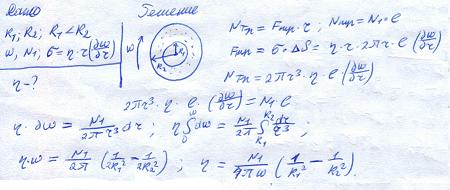 Дано
R₁; R₂; R₁ < R₂
ω, N₁; σ = η · r (∂ω/∂r)
η - ?
Решение
ω
R₁
R₂
Nтр = Fтр · r ; Nтр = N₁ · ℓ
Fтр = σ · ΔS = η · r · 2πr · ℓ (∂ω/∂r)
Nтр = 2πr³ · η · ℓ (∂ω/∂r)
2πr³ · η · ℓ · (∂ω/∂r) = N₁ · ℓ
η · ∂ω = N₁/2πr³ dr ; η ∫₀^ω dω = N₁/2π ∫_R₁^R₂ dr/r³ ;
η · ω = N₁/2π (1/2R₁² - 1/2R₂²) ; η = N₁/4πω (1/R₁² - 1/R₂²).